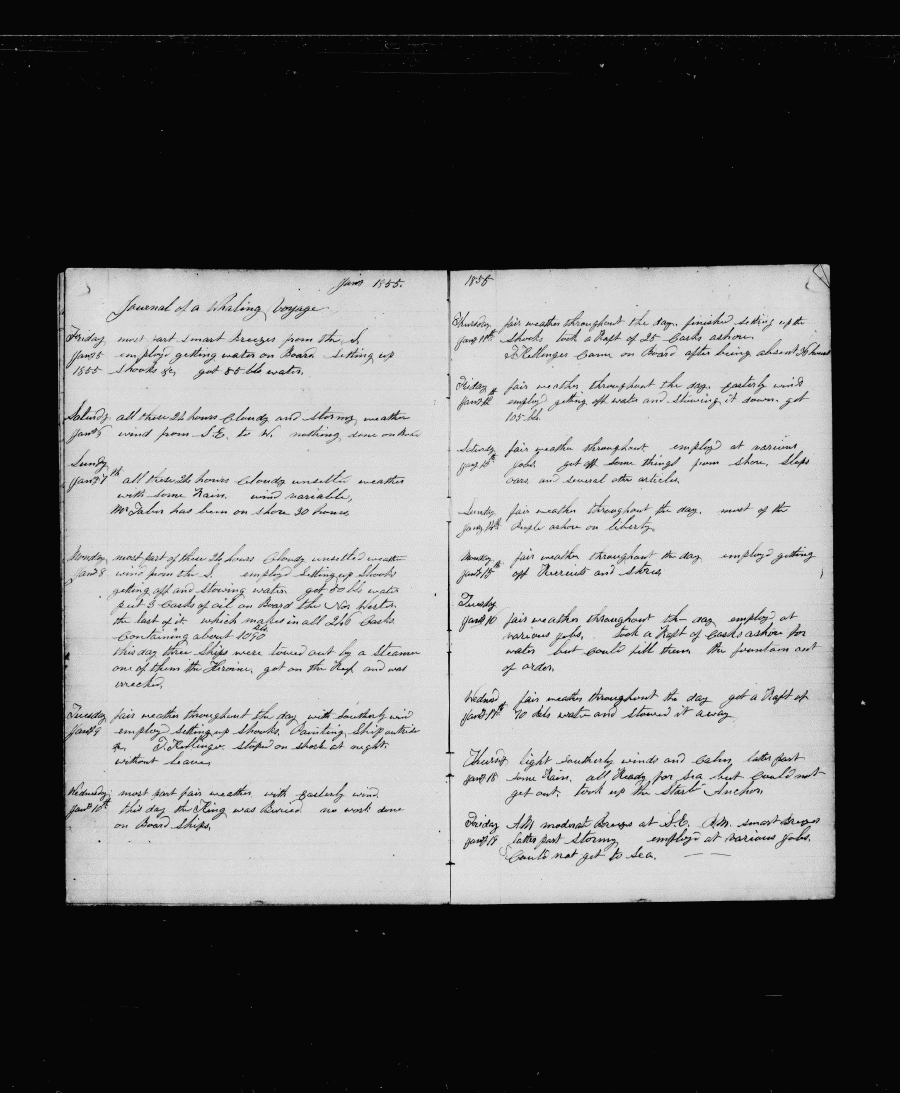 Jany 1855.
Journal of a Whaling Voyage
Friday most part smart breezes from the S.
Jany 5 employd getting water on Board Setting up
1855 Shooks &c. got 85 bls water.
Saturdy all these 24 hours Cloudy and Stormy weather
Jany 6 wind from S.E. to W. nothing done
Sundy
Jany 7th all these 24 hours Cloudy unsettled weather
with some Rain. wind variable,
Mr Tabor has been on shore 30 hours.
Monday most part of these 24 hours Cloudy unsettled weather
Jany 8 wind from the S. employd Setting up Shooks
getting off and Stowing water. got 80 bls water
put 5 Casks of oil on Board the Nor Wester,
the last of it. which makes in all 246 Casks
Containing about 1040
this day three Ships were towed out by a Steamer
one of them the Heroine, got on the Reef and was
wrecked.
Tuesday fair weather throughout the day with Southerly wind
Jany 9 employd setting up Shooks. Painting Ship outside
&c. T. Kellinger stoped on shore at night
without leave,
Wednsday most part fair weather with Easterly wind
Jany 10th this day the King was Buried no work done
on Board Ships.
1855
Thursday fair weather throughout the day. finished setting up the
Jany 11th Shooks took a Raft of 25 Casks ashore.
T. Kellinger Came on Board after being absent 36 hours
Friday fair weather throughout the day. Easterly winds
Jany 12 employd getting off water and Stowing it down. got
105 bls.
Saturdy fair weather throughout employd at various
Jany 13th jobs. got off some things from shore, Slops
oars, and several other articles,
Sundy fair weather throughout the day. most of the
Jany 14th People ashore on liberty,
Monday fair weather throughout the day employd getting
Jany 15th off Recruits and stores
Tuesday
Jany 16 fair weather throughout the day employd at
various jobs. took a Raft of Casks ashore for
water but Could fill them the fountain out
of order,
Wednsd fair weather throughout the day got a Raft of
Jany 17th 70 bbls water and stowed it away
Thursdy light Southerly winds and Calm, later part
Jany 18 some Rain. all Ready for Sea but Could not
get out. took up the Starb Anchor,
Friday AM moderat Breezes at S.E. P.M. smart Breezes
Jany 19 latter part Stormy employd at various jobs,
Could not get to Sea.